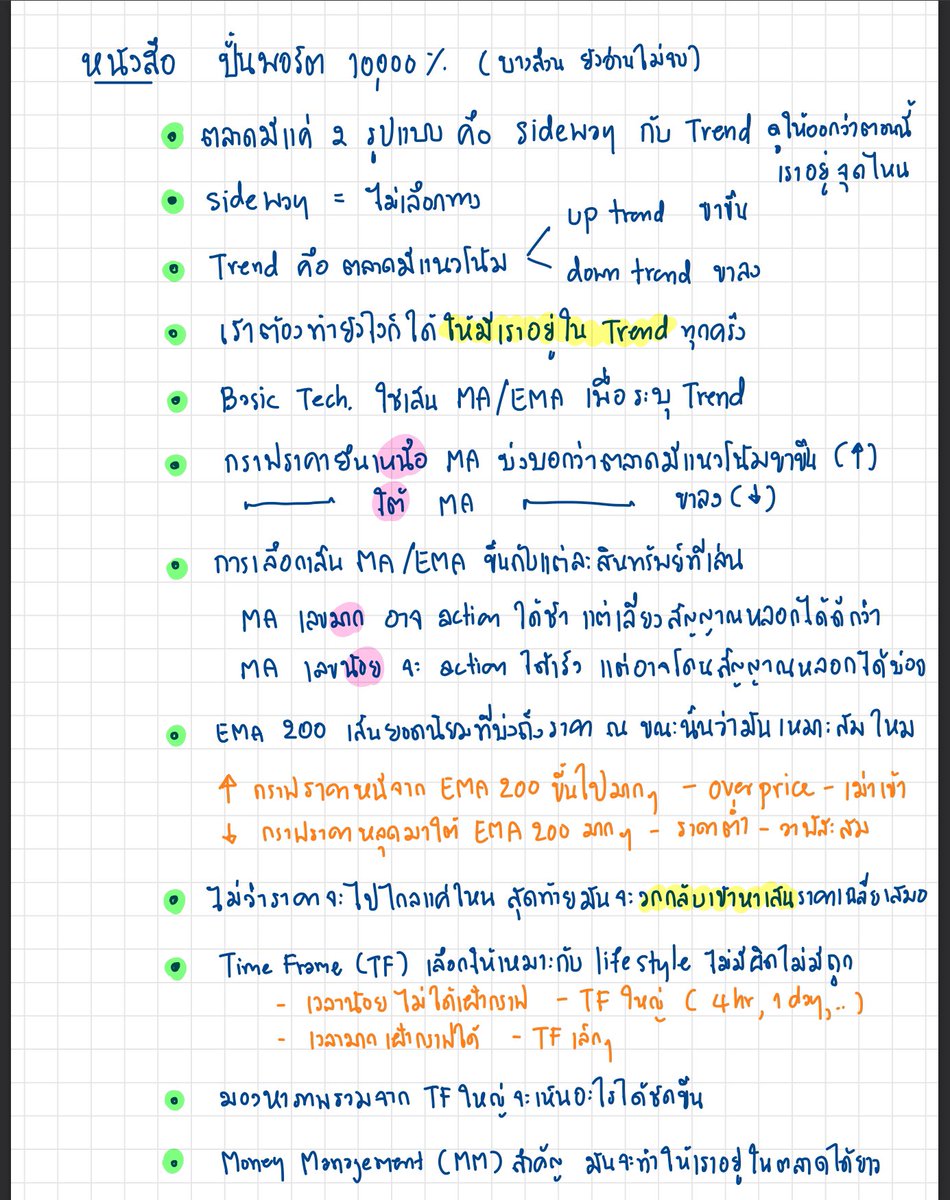 หนังสือ ปั้นพอร์ต 10,000% (บางส่วน ยังอ่านไม่จบ)
ตลาดมีแค่ 2 รูปแบบ คือ sideway กับ Trend ดูให้ออกว่าตอนนี้
เราอยู่จุดไหน
sideway = ไม่เลือกทาง
up trend ขาขึ้น
Trend คือ ตลาดมีแนวโน้ม
down trend ขาลง
เราต้องทำยังไงก็ได้ ให้มีเราอยู่ใน Trend ทุกครั้ง
Basic Tech. ใช้เส้น MA/EMA เพื่อระบุ Trend
กราฟราคายืนเหนือ MA บ่งบอกว่าตลาดมีแนวโน้มขาขึ้น (↑)
ใต้ MA ขาลง (↓)
การเลือกเส้น MA/EMA ขึ้นกับแต่ละสินทรัพย์ที่เล่น
MA เลขมาก อาจ action ได้ช้า แต่เลี่ยงสัญญาณหลอกได้ดีกว่า
MA เลขน้อย จะ action ได้เร็ว แต่อาจโดนสัญญาณหลอกได้บ่อย
EMA 200 เส้นยอดนิยมที่บ่งถึงราคา ณ ขณะนั้นว่ามันเหมาะสมไหม
↑ กราฟราคาหนีจาก EMA 200 ขึ้นไปมากๆ - over price - เม่าเข้า
↓ กราฟราคาหลุดมาใต้ EMA 200 มากๆ - ราคาต่ำ - วาฬสะสม
ไม่ว่าราคาจะไปไกลแค่ไหน สุดท้ายมันจะวกกลับเข้าหาเส้นราคาเฉลี่ยเสมอ
Time Frame (TF) เลือกให้เหมาะกับ life style ไม่มีผิดไม่มีถูก
- เวลาน้อย ไม่ได้เฝ้ากราฟ - TF ใหญ่ (4hr, 1 day, ..)
- เวลามาก เฝ้ากราฟได้ - TF เล็กๆ
มองหาภาพรวมจาก TF ใหญ่ จะเห็นอะไรได้ชัดขึ้น
Money Management (MM) สำคัญ มันจะทำให้เราอยู่ในตลาดได้ยาว